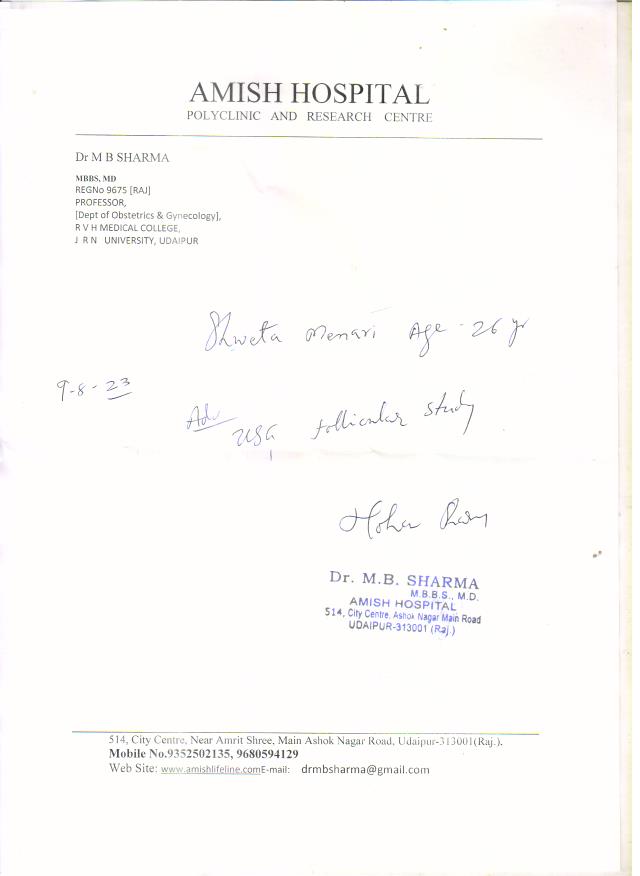 AMISH HOSPITAL
POLYCLINIC AND RESEARCH CENTRE
Dr M B SHARMA
MBBS, MD
REGNo 9675 [RAJ]
PROFESSOR,
[Dept of Obstetrics & Gynecology],
R V H MEDICAL COLLEGE,
J R N UNIVERSITY, UDAIPUR
Shweta Menari Age - 26 yr
9-8-23
Adv
USG follicular study
Dr. M.B. SHARMA
M.B.B.S., M.D.
AMISH HOSPITAL
514, City Centre, Ashok Nagar Main Road
UDAIPUR-313001 (Raj.)
514, City Centre, Near Amrit Shree, Main Ashok Nagar Road, Udaipur-313001(Raj.).
Mobile No.9352502135, 9680594129
Web Site: www.amishlifeline.comE-mail: drmbsharma@gmail.com